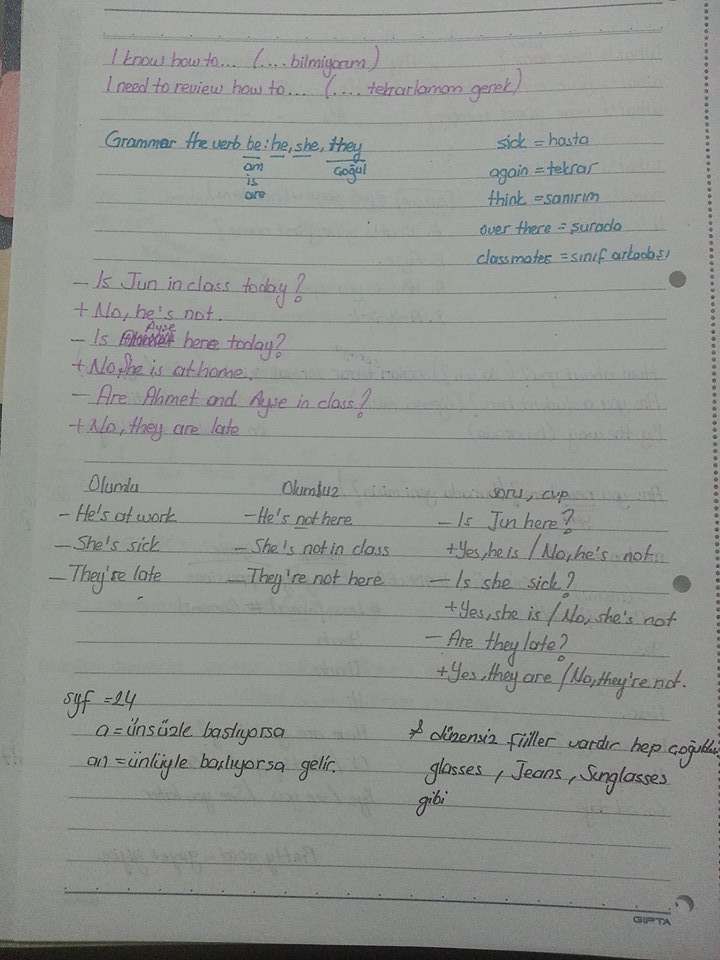 I know how to... (.... bilmiyorum)
I need to review how to... (.... tekrarlamam gerek)
Grammar the verb be: he, she, they
am
is
are
çoğul
sick = hasta
again = tekrar
think = sanırım
over there = şurada
classmates = sınıf arkadaşı
- Is Jun in class today?
+ No, he's not.
- Is Ayşe here today?
+ No, she is at home.
- Are Ahmet and Ayşe in class?
+ No, they are late
Olumlu
- He's at work
- She's sick
- They're late
Olumsuz
- He's not here
- She's not in class
- They're not here
soru, cvp
- Is Jun here?
+ Yes, he is / No, he's not.
- Is she sick?
+ Yes, she is / No, she's not
- Are they late?
+ Yes, they are / No, they're not.
syf = 24
a = ünsüzle başlıyorsa
an = ünlüyle başlıyorsa gelir.
* düzensiz fiiller vardır hep
glasses, Jeans, Sunglasses
gibi
GIPTA